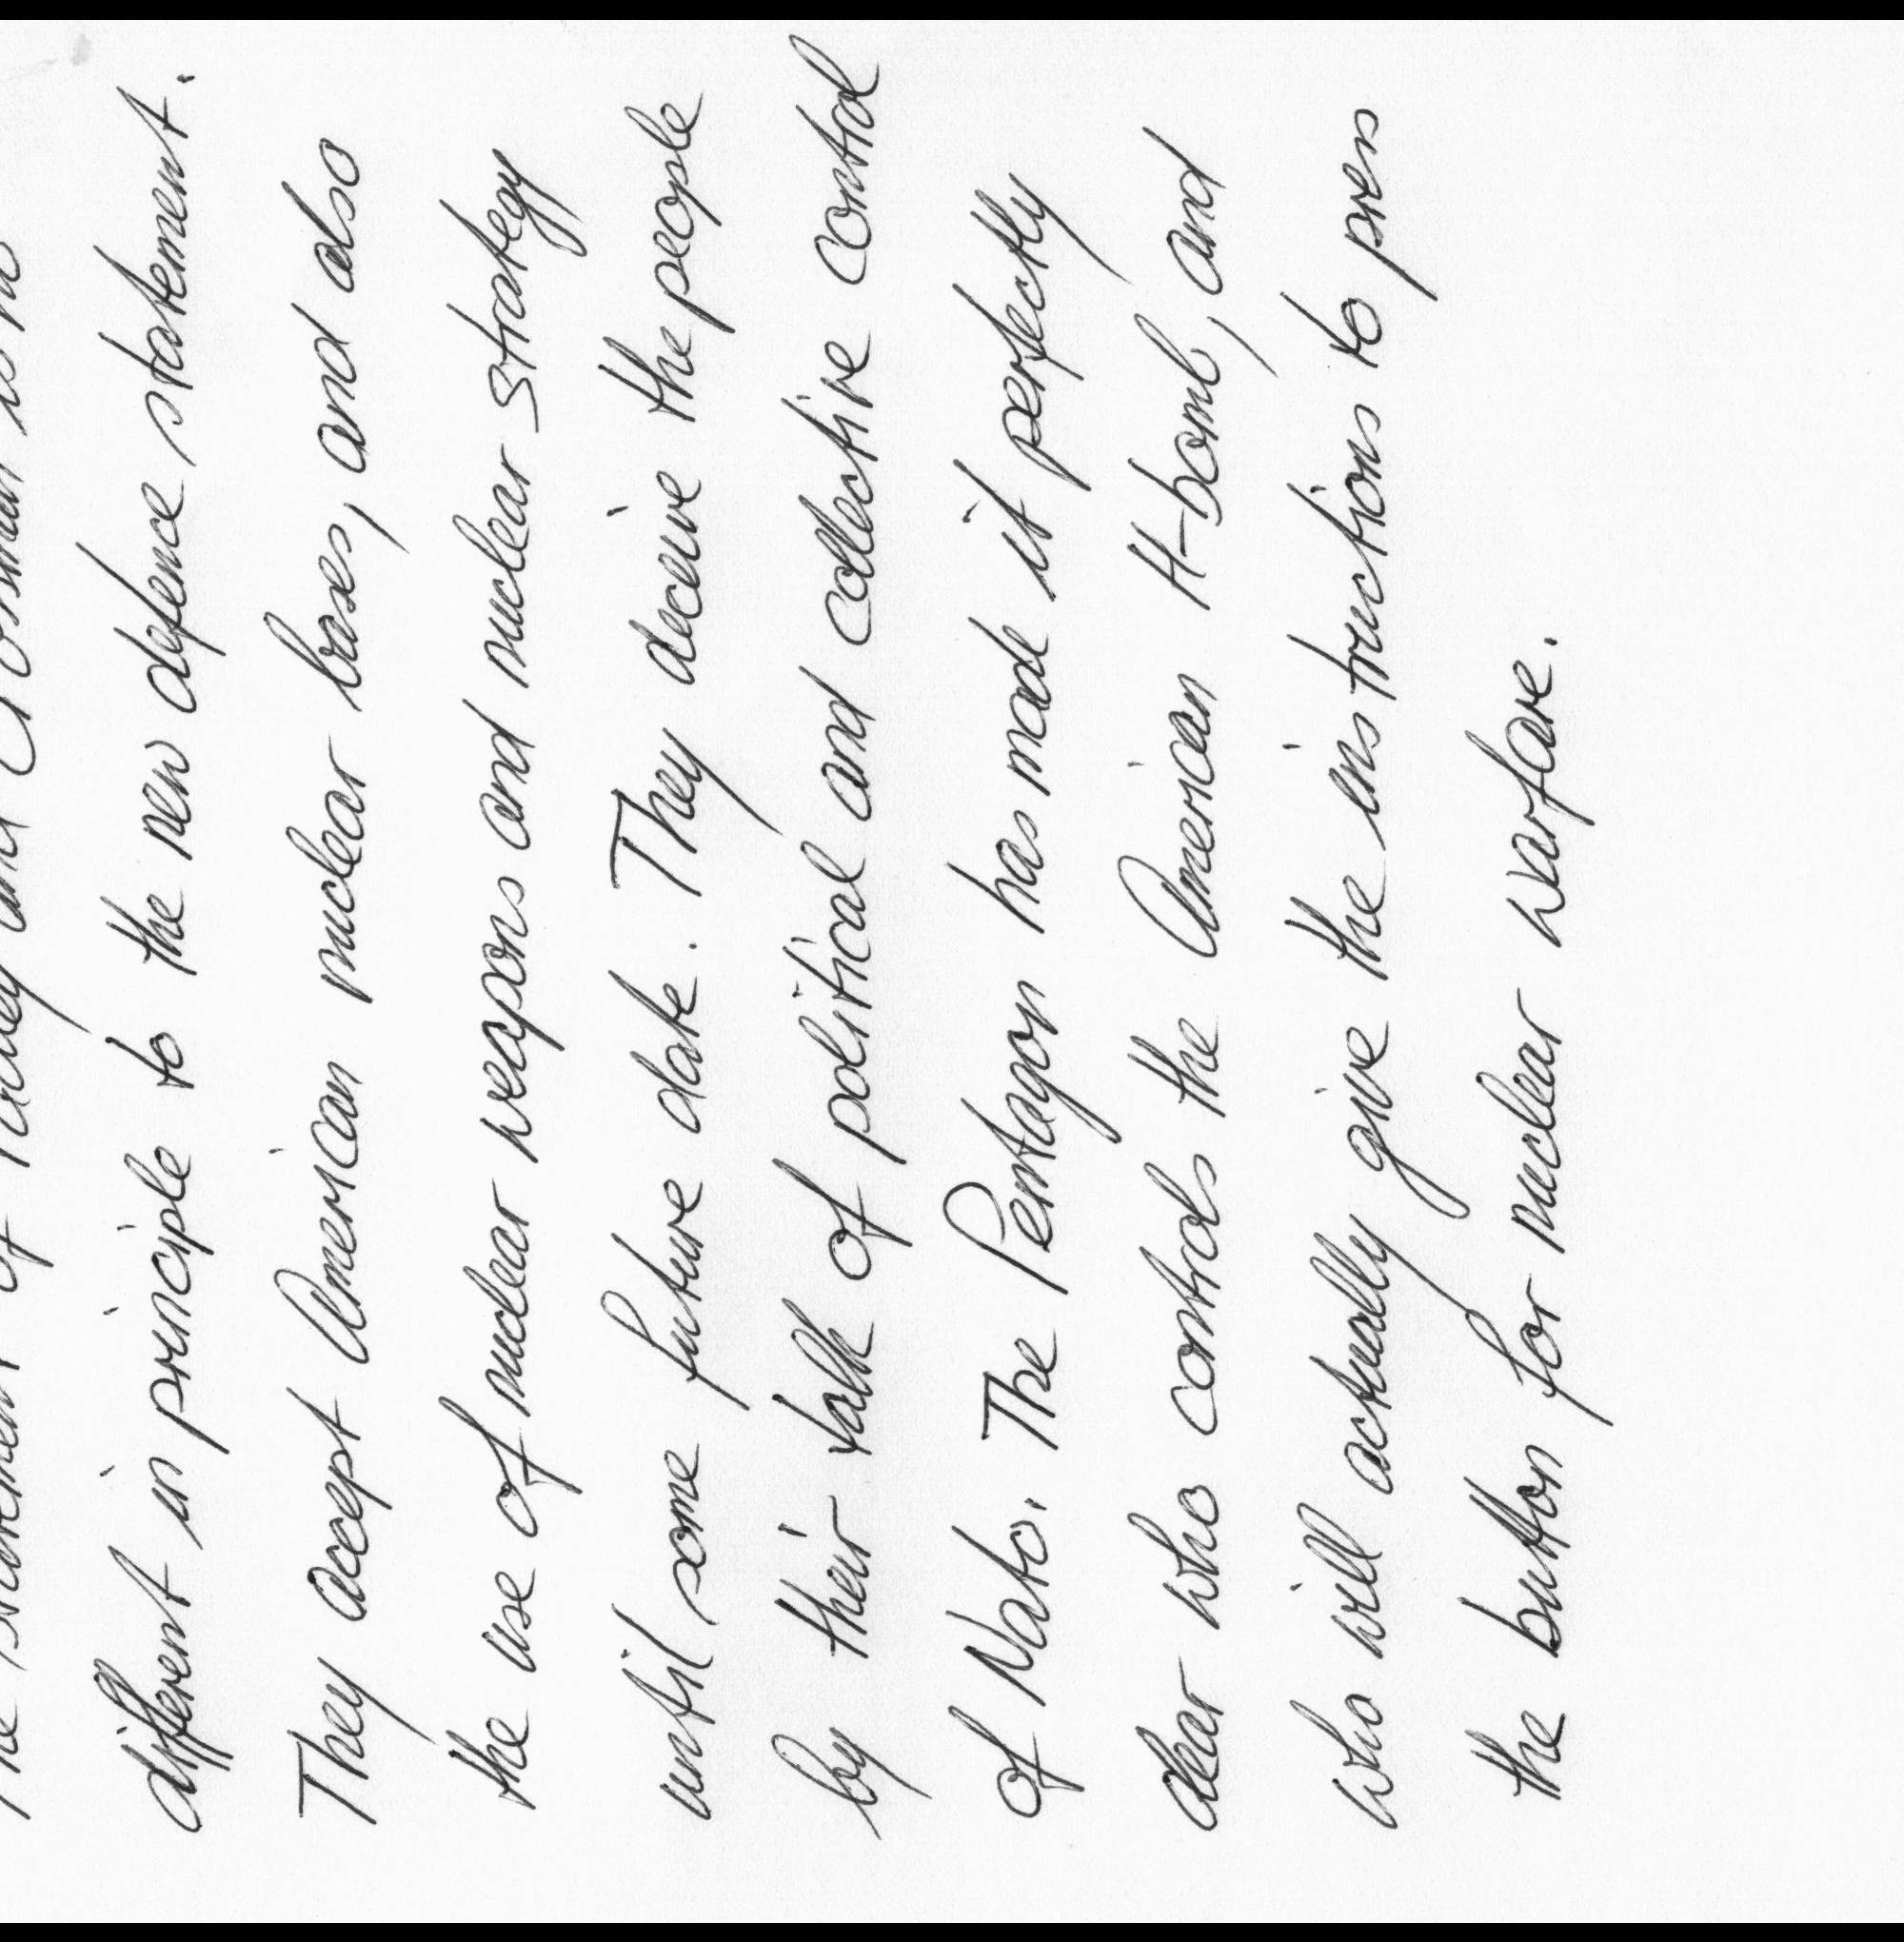 The statement of Padley and Crosman is no
different in principle to the new defence statement.
They accept American nuclear bases, and also
the use of nuclear weapons and nuclear strategy
until some future date. They deceive the people
by their talk of political and collective control
of Nato. The Pentagon has made it perfectly
clear who controls the American H-bomb, and
who will actually give the instructions to press
the button for nuclear warfare.